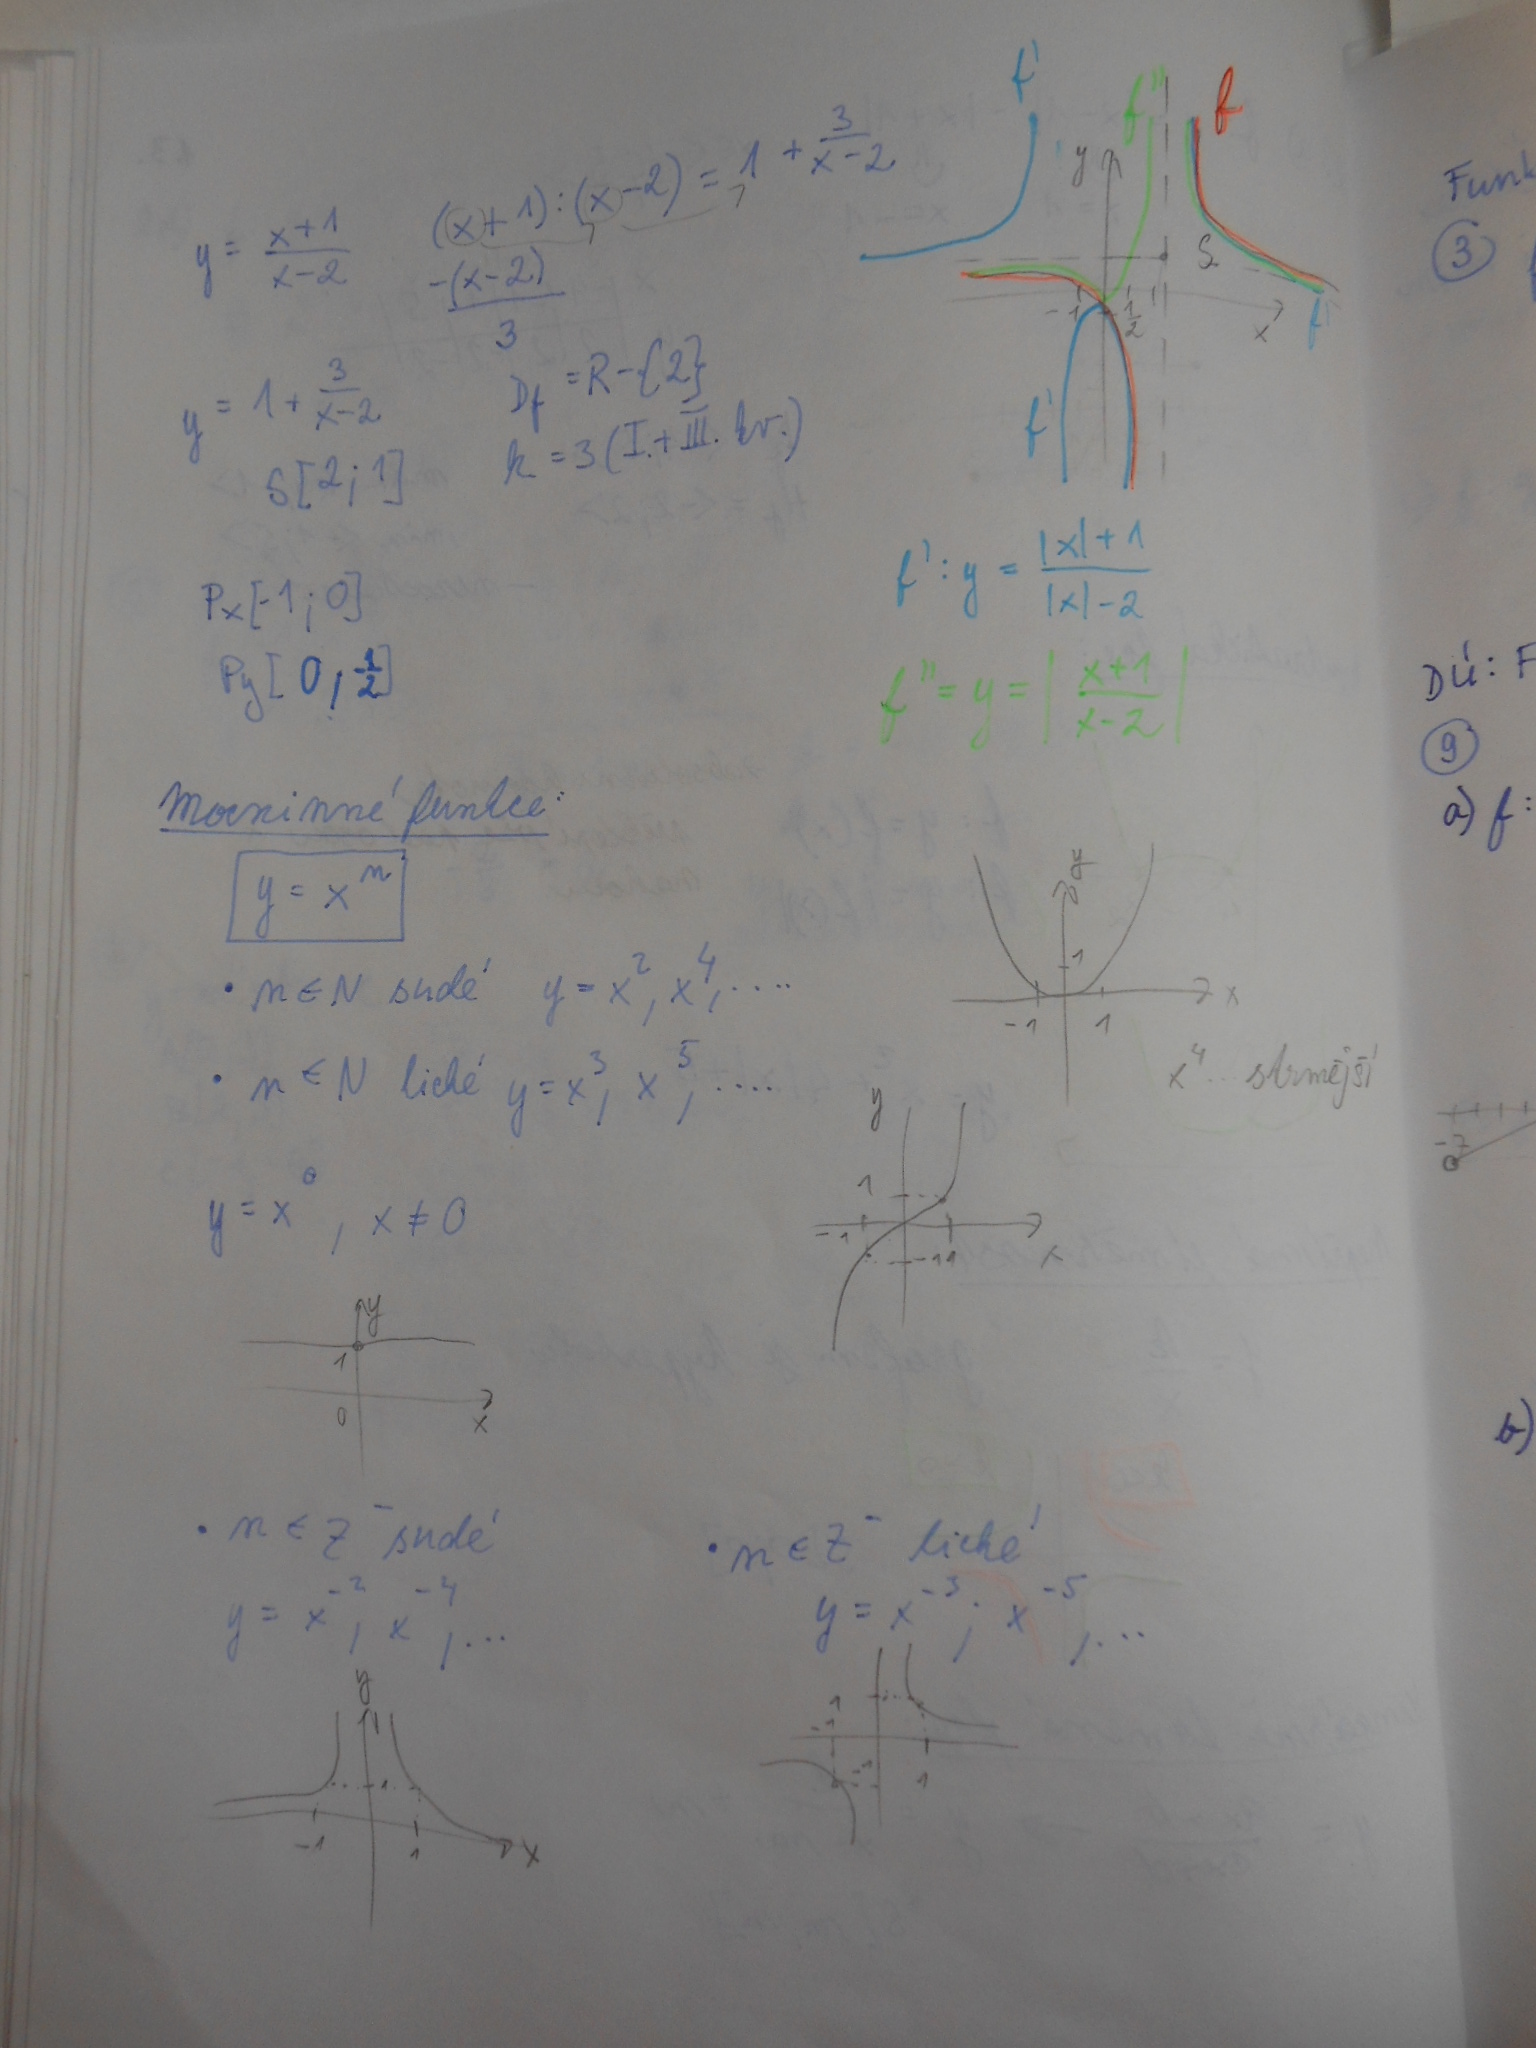 y = x+1 / x-2
(x+1):(x-2) = 1 + 3/x-2
-(x-2)
3
y = 1 + 3/x-2
Df = R-{2}
S[2;1]
k = 3 (I.+III. kv.)
Px[-1;0]
Py[0;-1/2]
f' f'' f
y
S
-1 -1/2 x f'
f'
f': y = |x|+1 / |x|-2
f'' = y = |x+1 / x-2|
Mocninné funkce:
y = x^n
• n ∈ N sudé y = x^2, x^4, ....
y
1
-1 1 x
x^4 ... strmější
• n ∈ N liché y = x^3, x^5, ....
y
1
-1 -1 1 x
y = x^0, x ≠ 0
y
1
0 x
• n ∈ Z^- sudé
y = x^-2, x^-4, ...
y
1
-1 1 x
• n ∈ Z^- liché
y = x^-3; x^-5, ...
1
-1
-1 1
Funk
③ f
DÚ: F
⑨
a) f:
-7
b)